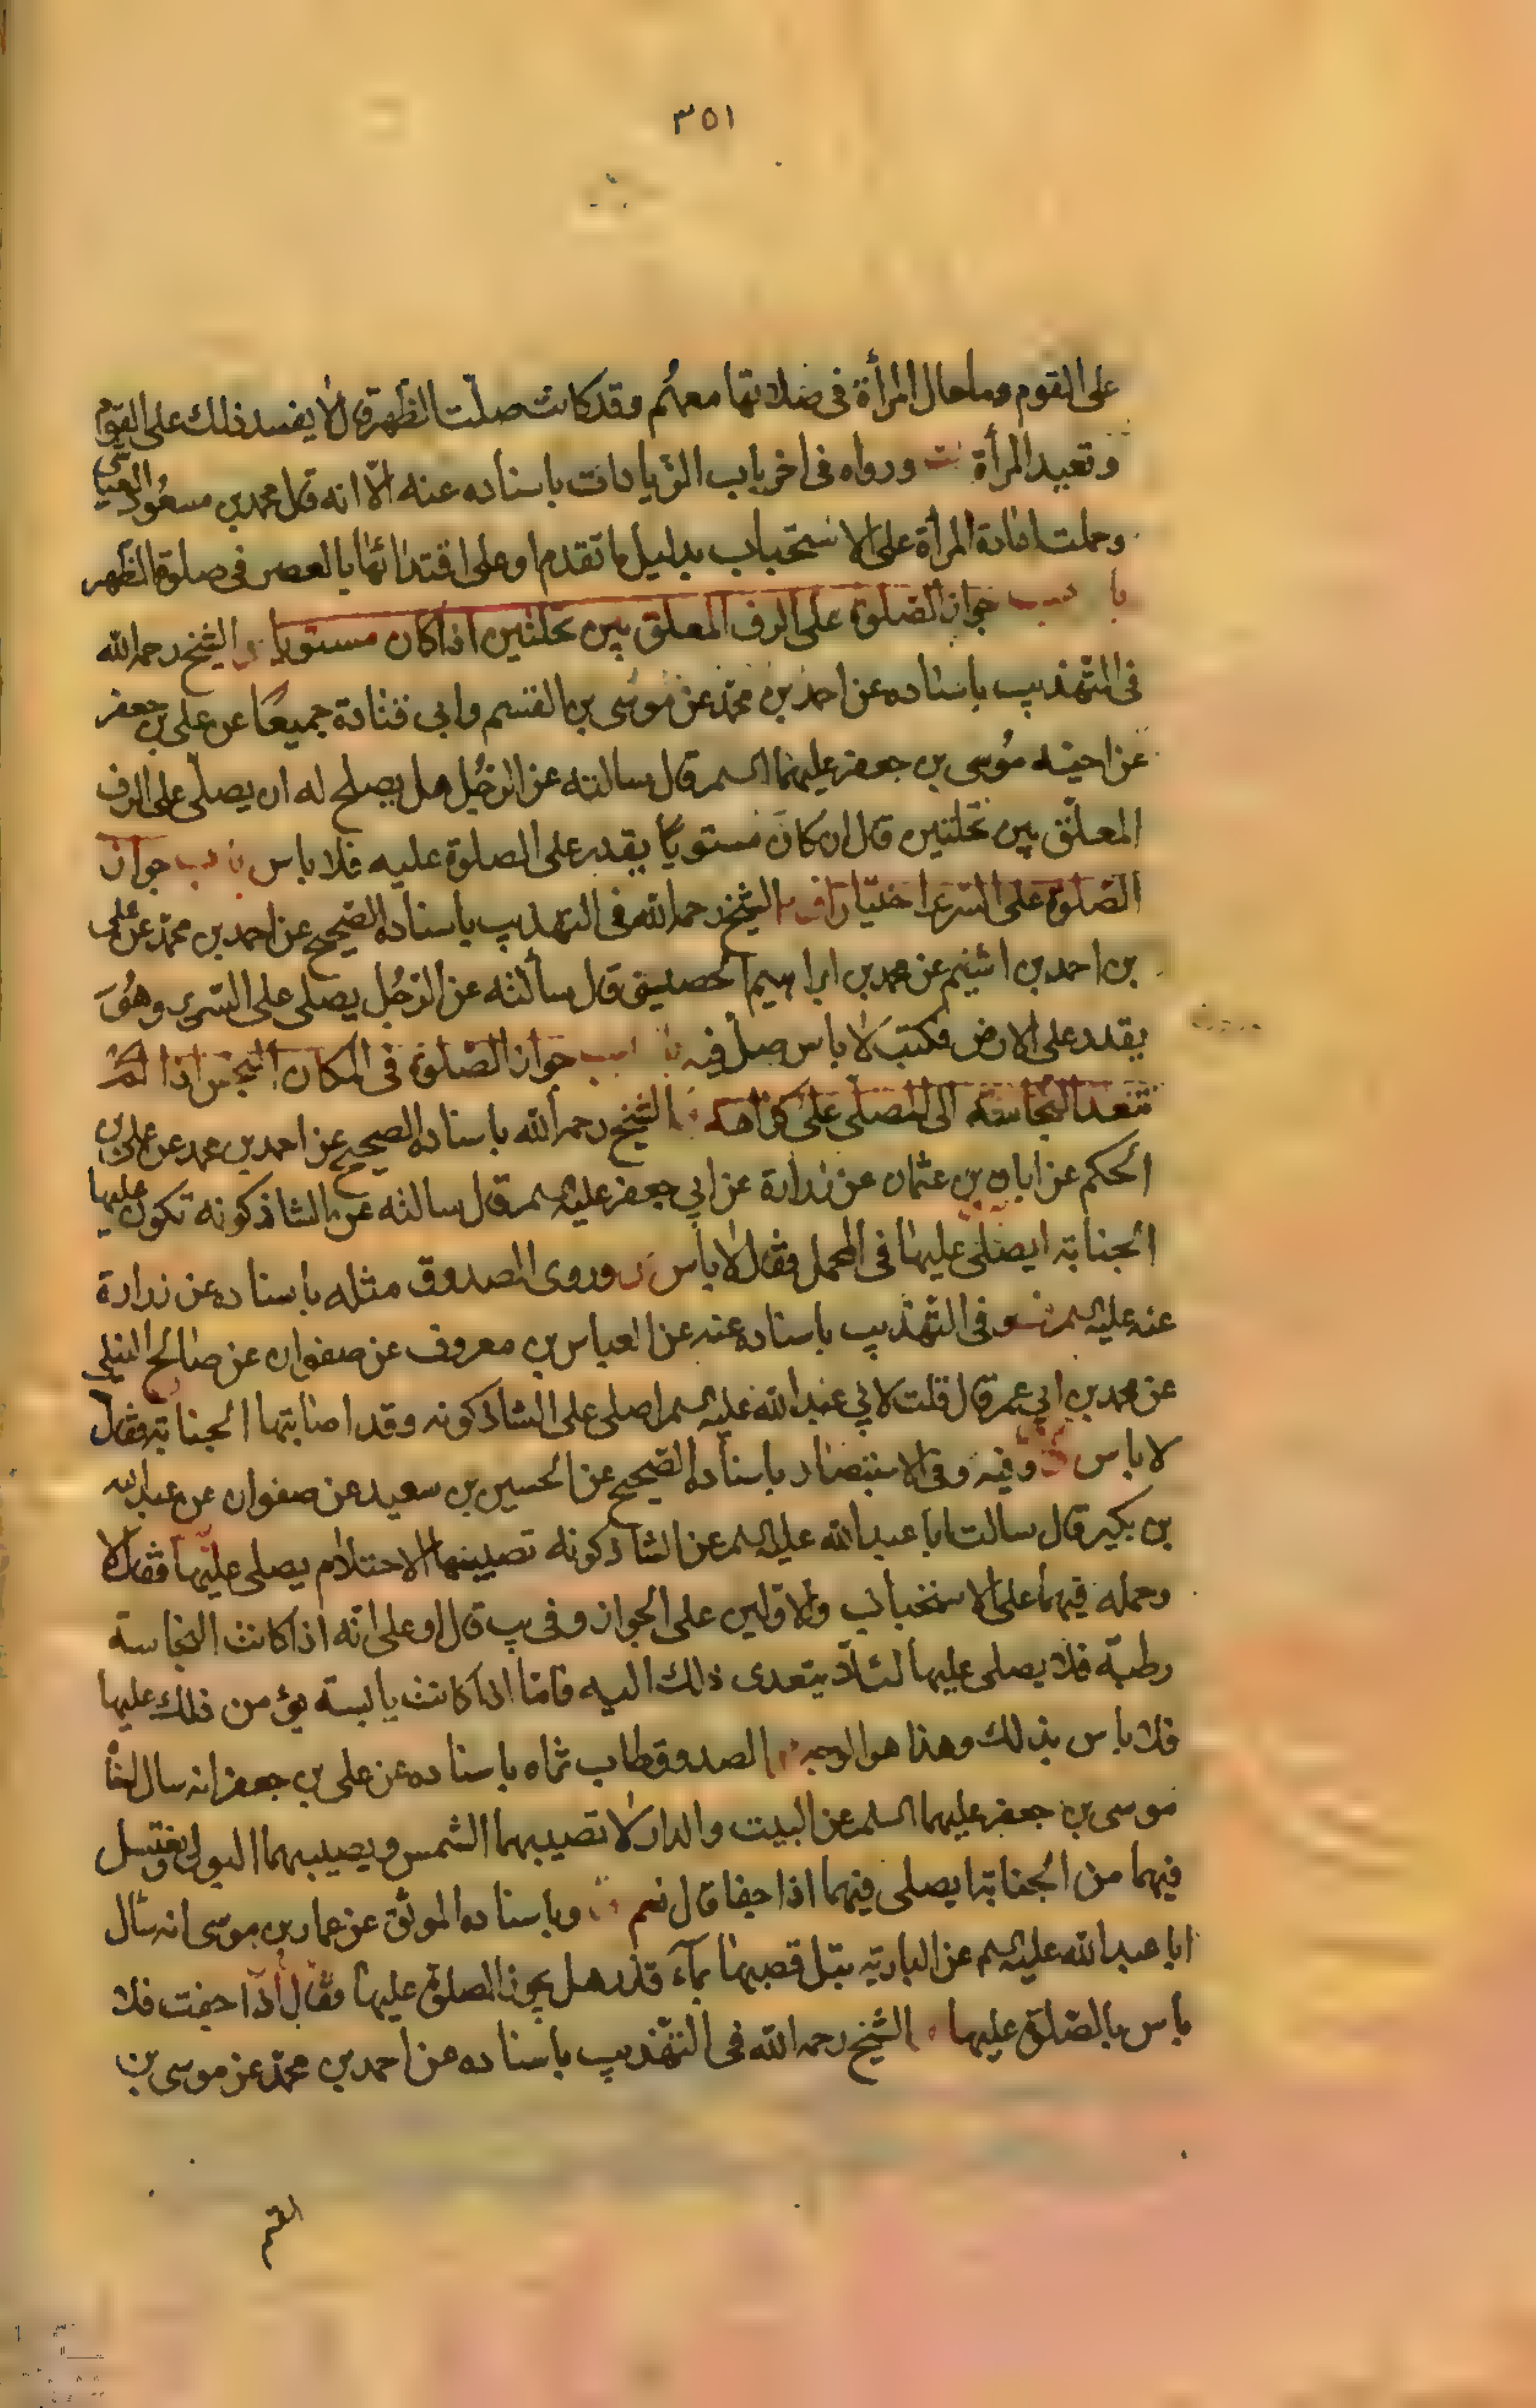 ٣٥١
على القوم وما حال المرأة فى صلاتها معهم وقد كانت صلّت الظهر قال لا يفسد ذلك على القوم
وتعيد المرأة ورواه فى اخر باب الزيادات باسناده عنه الّا انه قال محمد بن مسعود العياشى
وحملت اعادة المرأة على الاستحباب بدليل ما تقدم او على اقتدائها بالعصر فى صلوة الظهر
باب جواز الصلوة على الرف المعلق بين نخلتين اذا كان مستويا الشيخ رحمه الله
فى التهذيب باسناده عن احمد بن محمد عن موسى بن القسم وابى قتادة جميعا عن على بن جعفر
عن اخيه موسى بن جعفر عليهما السلم قال سالته عن الرجل هل يصلح له ان يصلّى على الرف
المعلّق بين نخلتين قال ان كان مستويا يقدر على الصلوة عليه فلا باس باب جواز
الصلوة على السرير اختيارا الشيخ رحمه الله فى التهذيب باسناده الصحيح عن احمد بن محمد عن على
بن احمد بن اشيم عن محمد بن ابراهيم الحصينى قال سألته عن الرجل يصلى على السرير وهو
يقدر على الارض فكتب لا باس صلّ فيه باب جواز الصلوة فى المكان النجس اذا لم
تتعد النجاسة الى المصلّى على كراهة الشيخ رحمه الله باسناده الصحيح عن احمد بن محمد عن على بن
الحكم عن ابان بن عثمان عن زرارة عن ابى جعفر عليه السلم قال سالته عن الشاذكونة تكون عليها
الجنابة ايصلّى عليها فى المحمل فقال لا باس وروى الصدوق مثله باسناده عن زرارة
عنه عليه السلم وفى التهذيب باسناده عنه عن العباس بن معروف عن صفوان عن صالح النيلى
عن محمد بن ابى عمير قال قلت لابى عبد الله عليه السلم اصلى على الشاذكونه وقد اصابتها الجنابة فقال
لا باس وفيه وفى الاستبصار باسناده الصحيح عن الحسين بن سعيد عن صفوان عن عبد الله
بن بكير قال سالت ابا عبد الله عليه السلم عن الشاذكونه تصيبها الاحتلام يصلى عليها فقال لا
وحمله فيهما على الاستحباب والاولين على الجواز وفى يب قال او على انّه اذا كانت النجاسة
رطبة فلا يصلى عليها لئلّا يتعدى ذلك اليه فامّا اذا كانت يابسة يؤمن ذلك عليها
فلا باس بذلك وهذا هو الوجه الصدوق طاب ثراه باسناده عن على بن جعفر انه سال اخاه
موسى بن جعفر عليهما السلم عن البيت والدار لا تصيبهما الشمس ويصيبهما البول ويغتسل
فيهما من الجنابة ايصلى فيهما اذا جفا قال نعم وباسناده الموثق عن عمار بن موسى انه سأل
ابا عبد الله عليه السلم عن البارية يبلّ قصبها بماء قذر هل يجوز الصلوة عليها فقال اذا جفت فلا
باس بالصّلوة عليها الشيخ رحمه الله فى التهذيب باسناده عن احمد بن محمد عن موسى بن
القسم